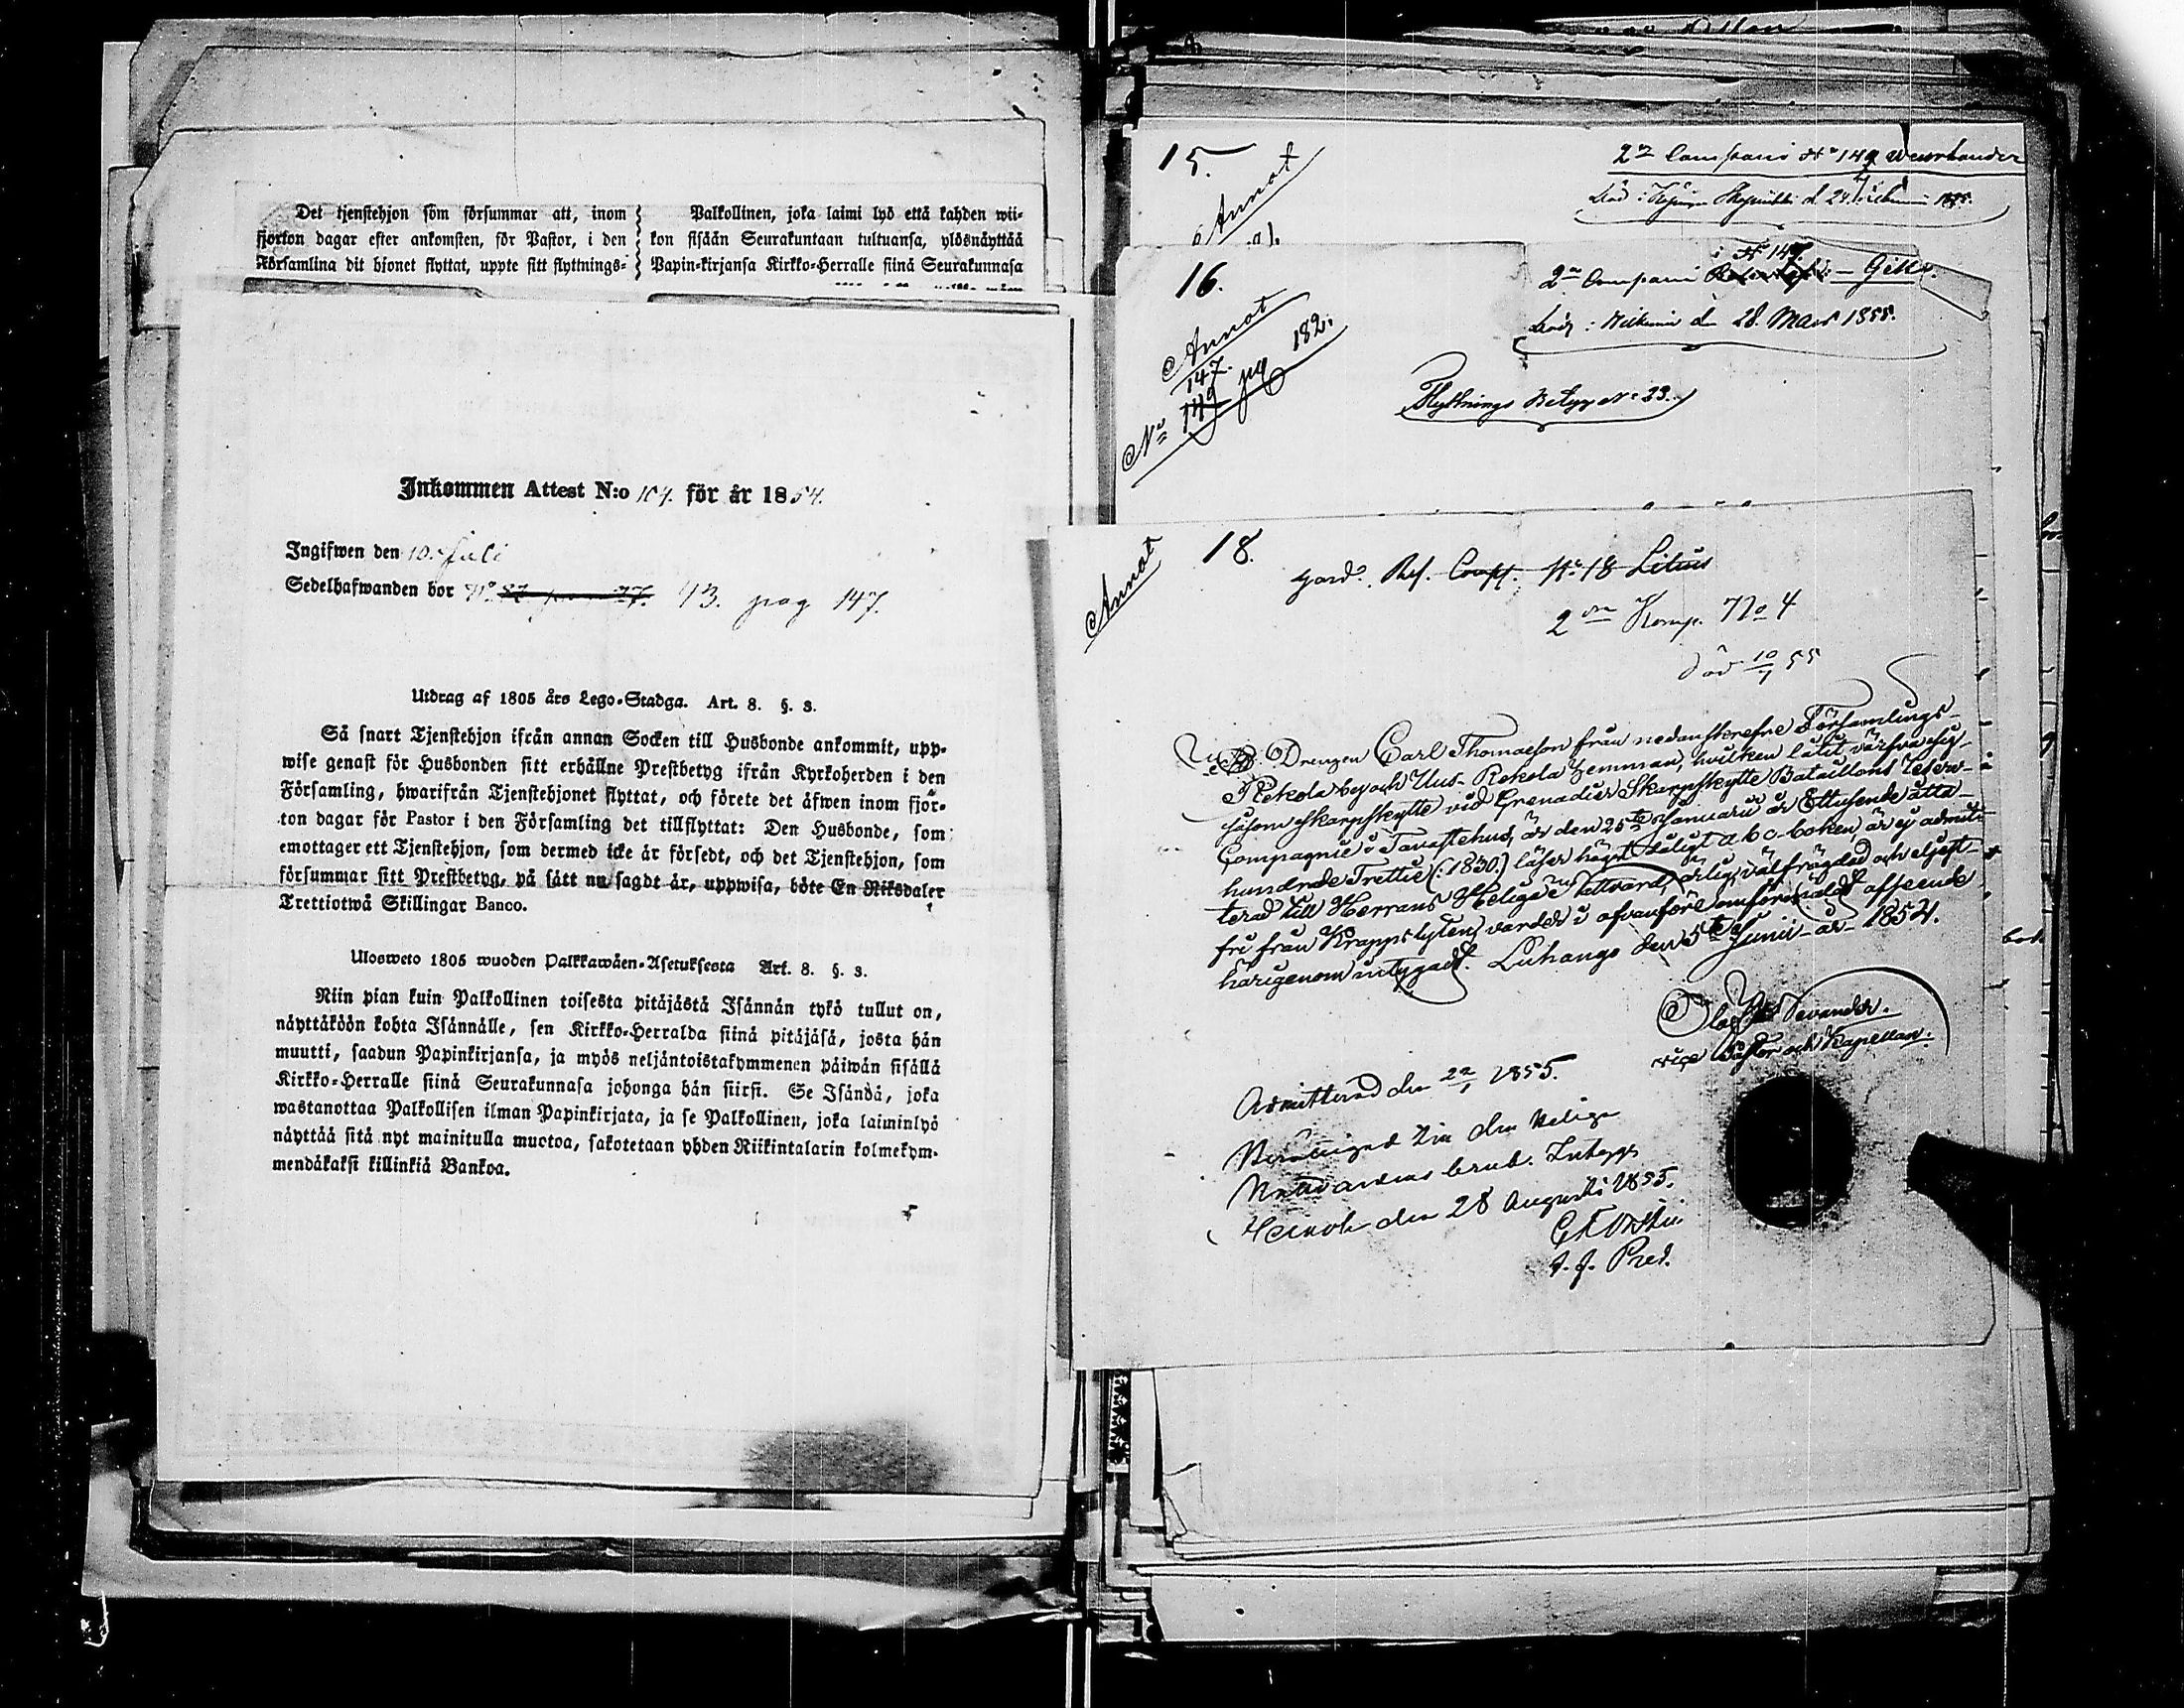 Det tjenstehjon som försummar att, inom
fjorton dagar efter ankomsten, för Pastor, i den
Församling dit hjonet flyttat, uppte sitt flyttnings-
Palkollinen, joka laimi lyö että kahden wii-
kon sisään Seurakuntaan tultuansa, ylösnäyttää
Papin-kirjansa Kirkko-Herralle siinä Seurakunnasa
Inkommen Attest N:o 104. för år 1854.
Ingifwen den 10. Juli
Sedelhafwanden bor No 43. pag 147.
Utdrag af 1805 års Lego-Stadga. Art. 8. §. 3.
Så snart Tjenstehjon ifrån annan Socken till Husbonde ankommit, upp-
wise genast för Husbonden sitt erhållne Prestbetyg ifrån Kyrkoherden i den
Församling, hwarifrån Tjenstehjonet flyttat, och förete det äfwen inom fjor-
ton dagar för Pastor i den Församling det tillflyttat: Den Husbonde, som
emottager ett Tjenstehjon, som dermed icke är försedt, och det Tjenstehjon, som
försummar sitt Prestbetyg, på sätt nu sagdt är, uppwisa, böte En Riksdaler
Trettiotwå Skillingar Banco.
Ulosweto 1805 wuoden Palkkawäen-Asetuksesta Art. 8. §. 3.
Niin pian kuin Palkollinen toisesta pitäjästä Isännän tykö tullut on,
näyttäköön kohta Isännälle, sen Kirkko-Herralda siinä pitäjäsä, josta hän
muutti, saadun Papinkirjansa, ja myös neljäntoistakymmenen päiwän sisällä
Kirkko-Herralle siinä Seurakunnasa johonga hän siirsi. Se Isändä, joka
wastanottaa Palkollisen ilman Papinkirjata, ja se Palkollinen, joka laiminlyö
näyttää sitä nyt mainitulla muotoa, sakotetaan yhden Riikintalarin kolmekym-
mendäkaksi killinkiä Bankoa.
15.
Annot
2n Compani No 149
16.
Annot
147.
No 149 pag 182.
i No 147.
2n Compani
död: d. 28. Mars 1855.
Flyttnings Betyg No 23.
18.
Annot
Res. Comp. No 18 Litius
2dra Komp. No 4
död 10/1 55
Drengen Carl Thomasson från nedanskrefne Församlings
Rekola by och Uus-Rekola hemman, hvilken låtit värfva sig
såsom Skarpskytte vid Grenadier Skarpskytte Bataillons Reserv-
Compagnie i Tavastehus, är den 25te Januarii år Ettusende åtta-
hundrade Trettio (:1830:) läser högst dåligt a b c-boken, är ej admit-
terad till Herrans Heliga Nattvard, ärlig, välfrägdad och eljest
fri från Krappslyten, varder i ofvanföre omförmäldt afseende
härigenom intygadt. Luhango den 5te Junii år 1854.
vice Pastor och Kapellan.
Admitterad den 22/1 1855.
den Heliga
Nattvardens bruk. Intygar
den 28 Augusti 1855.
t. f. Pred.